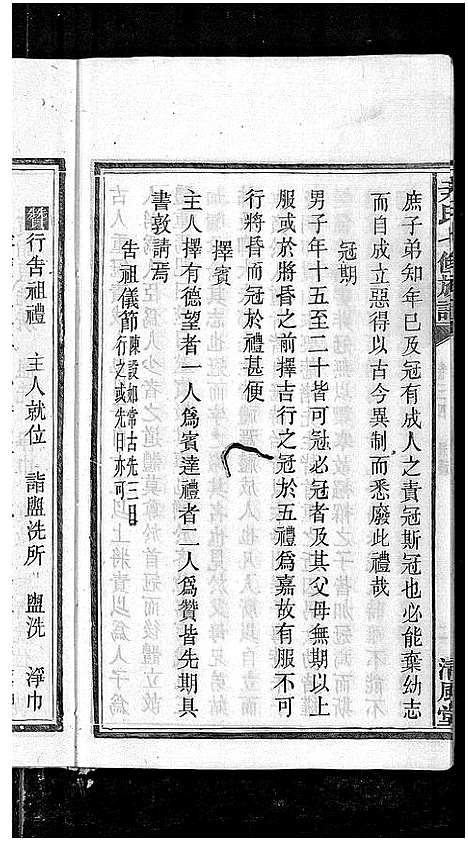 尹氏十修族譜
清風堂
庶子弟知年已及冠有成人之責冠斯冠也必能棄幼志
而自成立惡得以古今異制而悉廢此禮哉
冠期
男子年十五至二十皆可冠必冠者及其父母無期以上
服或於將昏之前擇吉行之冠於五禮爲嘉故有服不可
行將昏而冠於禮甚便
擇賓
主人擇有德望者一人爲賓達禮者二人爲贊皆先期具
書敦請焉
告祖儀節陳設如常古先三日
行之或先旧亦可
行告祖禮 主人就位 詣盥洗所 盥洗 淨巾